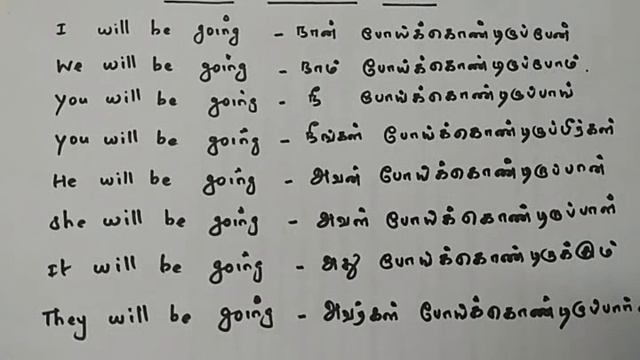 I will be going - நான் போய்க்கொண்டிருப்பேன்
We will be going - நாம் போய்க்கொண்டிருப்போம்.
you will be going - நீ போய்க்கொண்டிருப்பாய்
you will be going - நீங்கள் போய்க்கொண்டிருப்பீர்கள்
He will be going - அவன் போய்க்கொண்டிருப்பான்
she will be going - அவள் போய்க்கொண்டிருப்பாள்
It will be going - அது போய்க்கொண்டிருக்கும்
They will be going - அவர்கள்